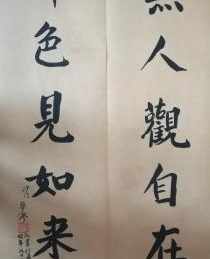 無人觀自在
色見如来